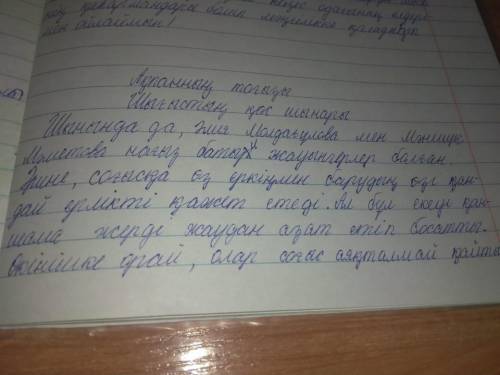 ойн ойлаймын!
Ақпанның тоғызы
Шығыстың қос шынары
Шынында да, Әлия Молдағұлова мен Мәншүк
Мәметова нағыз батыр жауынгерлер болған.
Әрине, соғысқа өз еркіңмен барудың өзі қан-
дай ерлікті қажет етеді. Ал бұл екеуі қан-
шама жерді жаудан азат етіп босатты.
Өкінішке орай, олар соғыс аяқталмай қайтыс